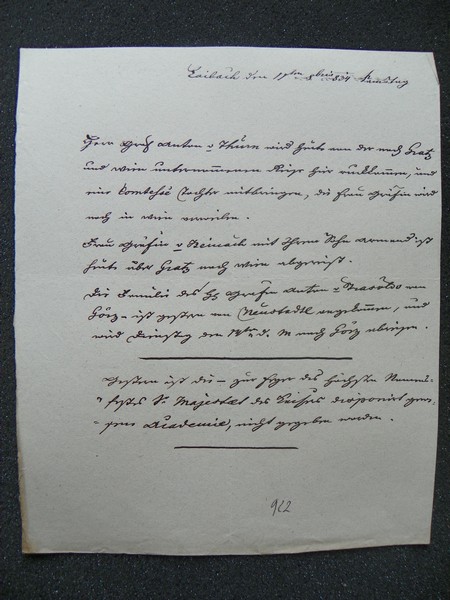 Laibach den 11ten 8ber 834 Samstag
Herr Graf Anton v Thurn wird heute von der nach Gratz
und Wien unternommenen Reise hier rückkommen, und
eine Comtesse Tochter mitbringen, die Frau Gräfin wird
noch in Wien verweilen.
Frau Gräfin v mit Ihrem Sohn Armand ist
heute über Gratz nach Wien abgereist.
Die Familie des H Grafen Anton v von
Görz – ist gestern von Neustadtl angekommen, und
wird Dienstag den d. M nach Görz abreisen.
Gestern ist die – zur Feyer des höchsten Namens-
festes Sr Majestaet des Kaisers disponirt gewe-
sene Academie, nicht gegeben worden.
962